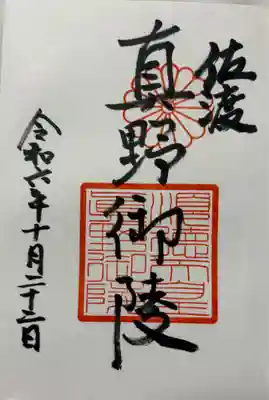 佐渡
真野御陵
令和六年十月二十二日